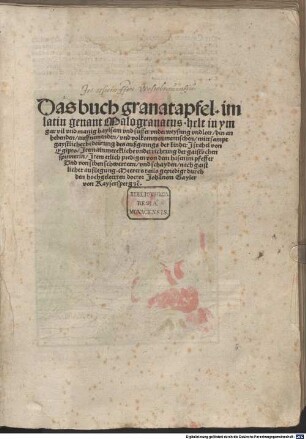 Das buch granatapfel. im
latin genant Malogranatus. helt in ym
gar vil und manig haylsam und süsser underweysung und leer / den an
hebenden / auffnemenden / und volkommen menschen / mitsampt
gaystlicher bedeütung des außgangs der kinder Israhel von
Egipto / Item ain merckliche underrichtung der gaistlichen
spinnerin / Item etlich predigen von dem hasen im pfeffer
Und von siben schwertern / und schayden / nach gaist
licher außlegung. Meerers tails geprediget durch
den hochgeleerten doctor Johannem Gayler
von Kaysersperg etc.
BIBLIOTHECA
REGIA
MONACENSIS